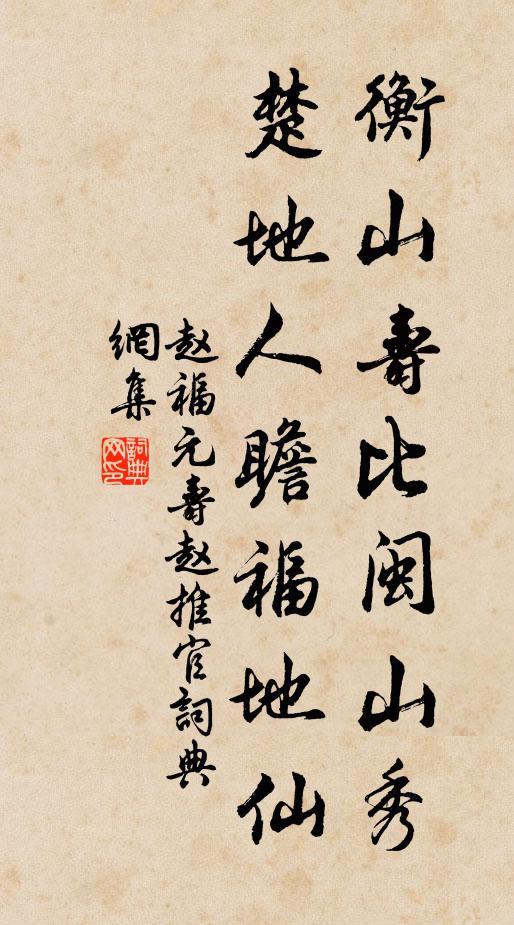 衡山壽比閩山秀
楚地人瞻福地仙
赵福元壽赵推官詞典
網集
詞典
网印